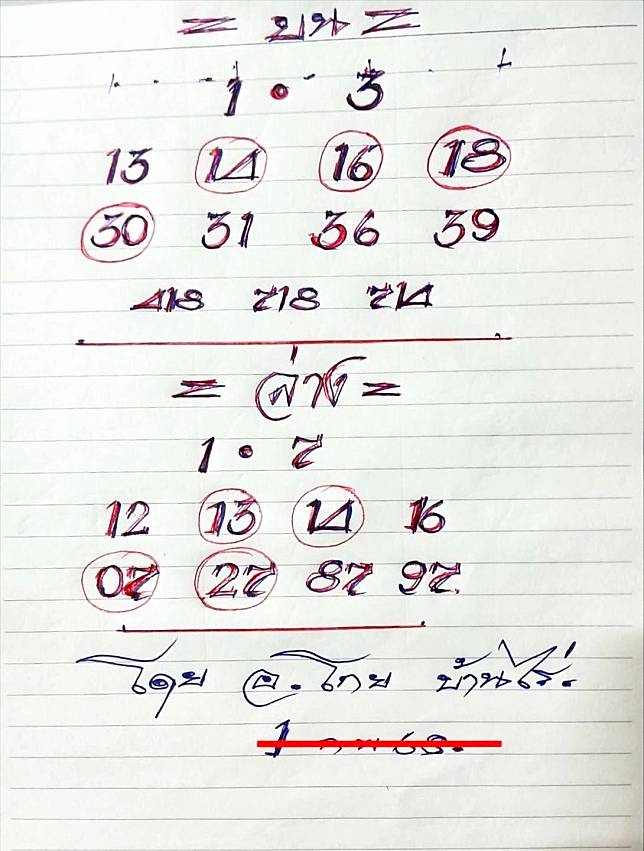 = บน =
1 • 3
13 14 16 18
30 31 36 39
418 718 714
= ล่าง =
1 • 7
12 13 14 16
07 27 87 97
โดย อ. โกย บ้านไร่.
1